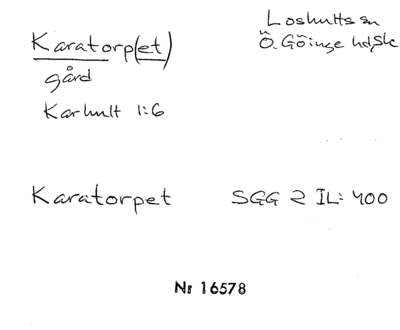 Karatorp(et)
Loshults sn
Ö. Göinge hd, Sk
gård
Karhult 1:6
Karatorpet
SGG 2 IL: 400
Nr 16578